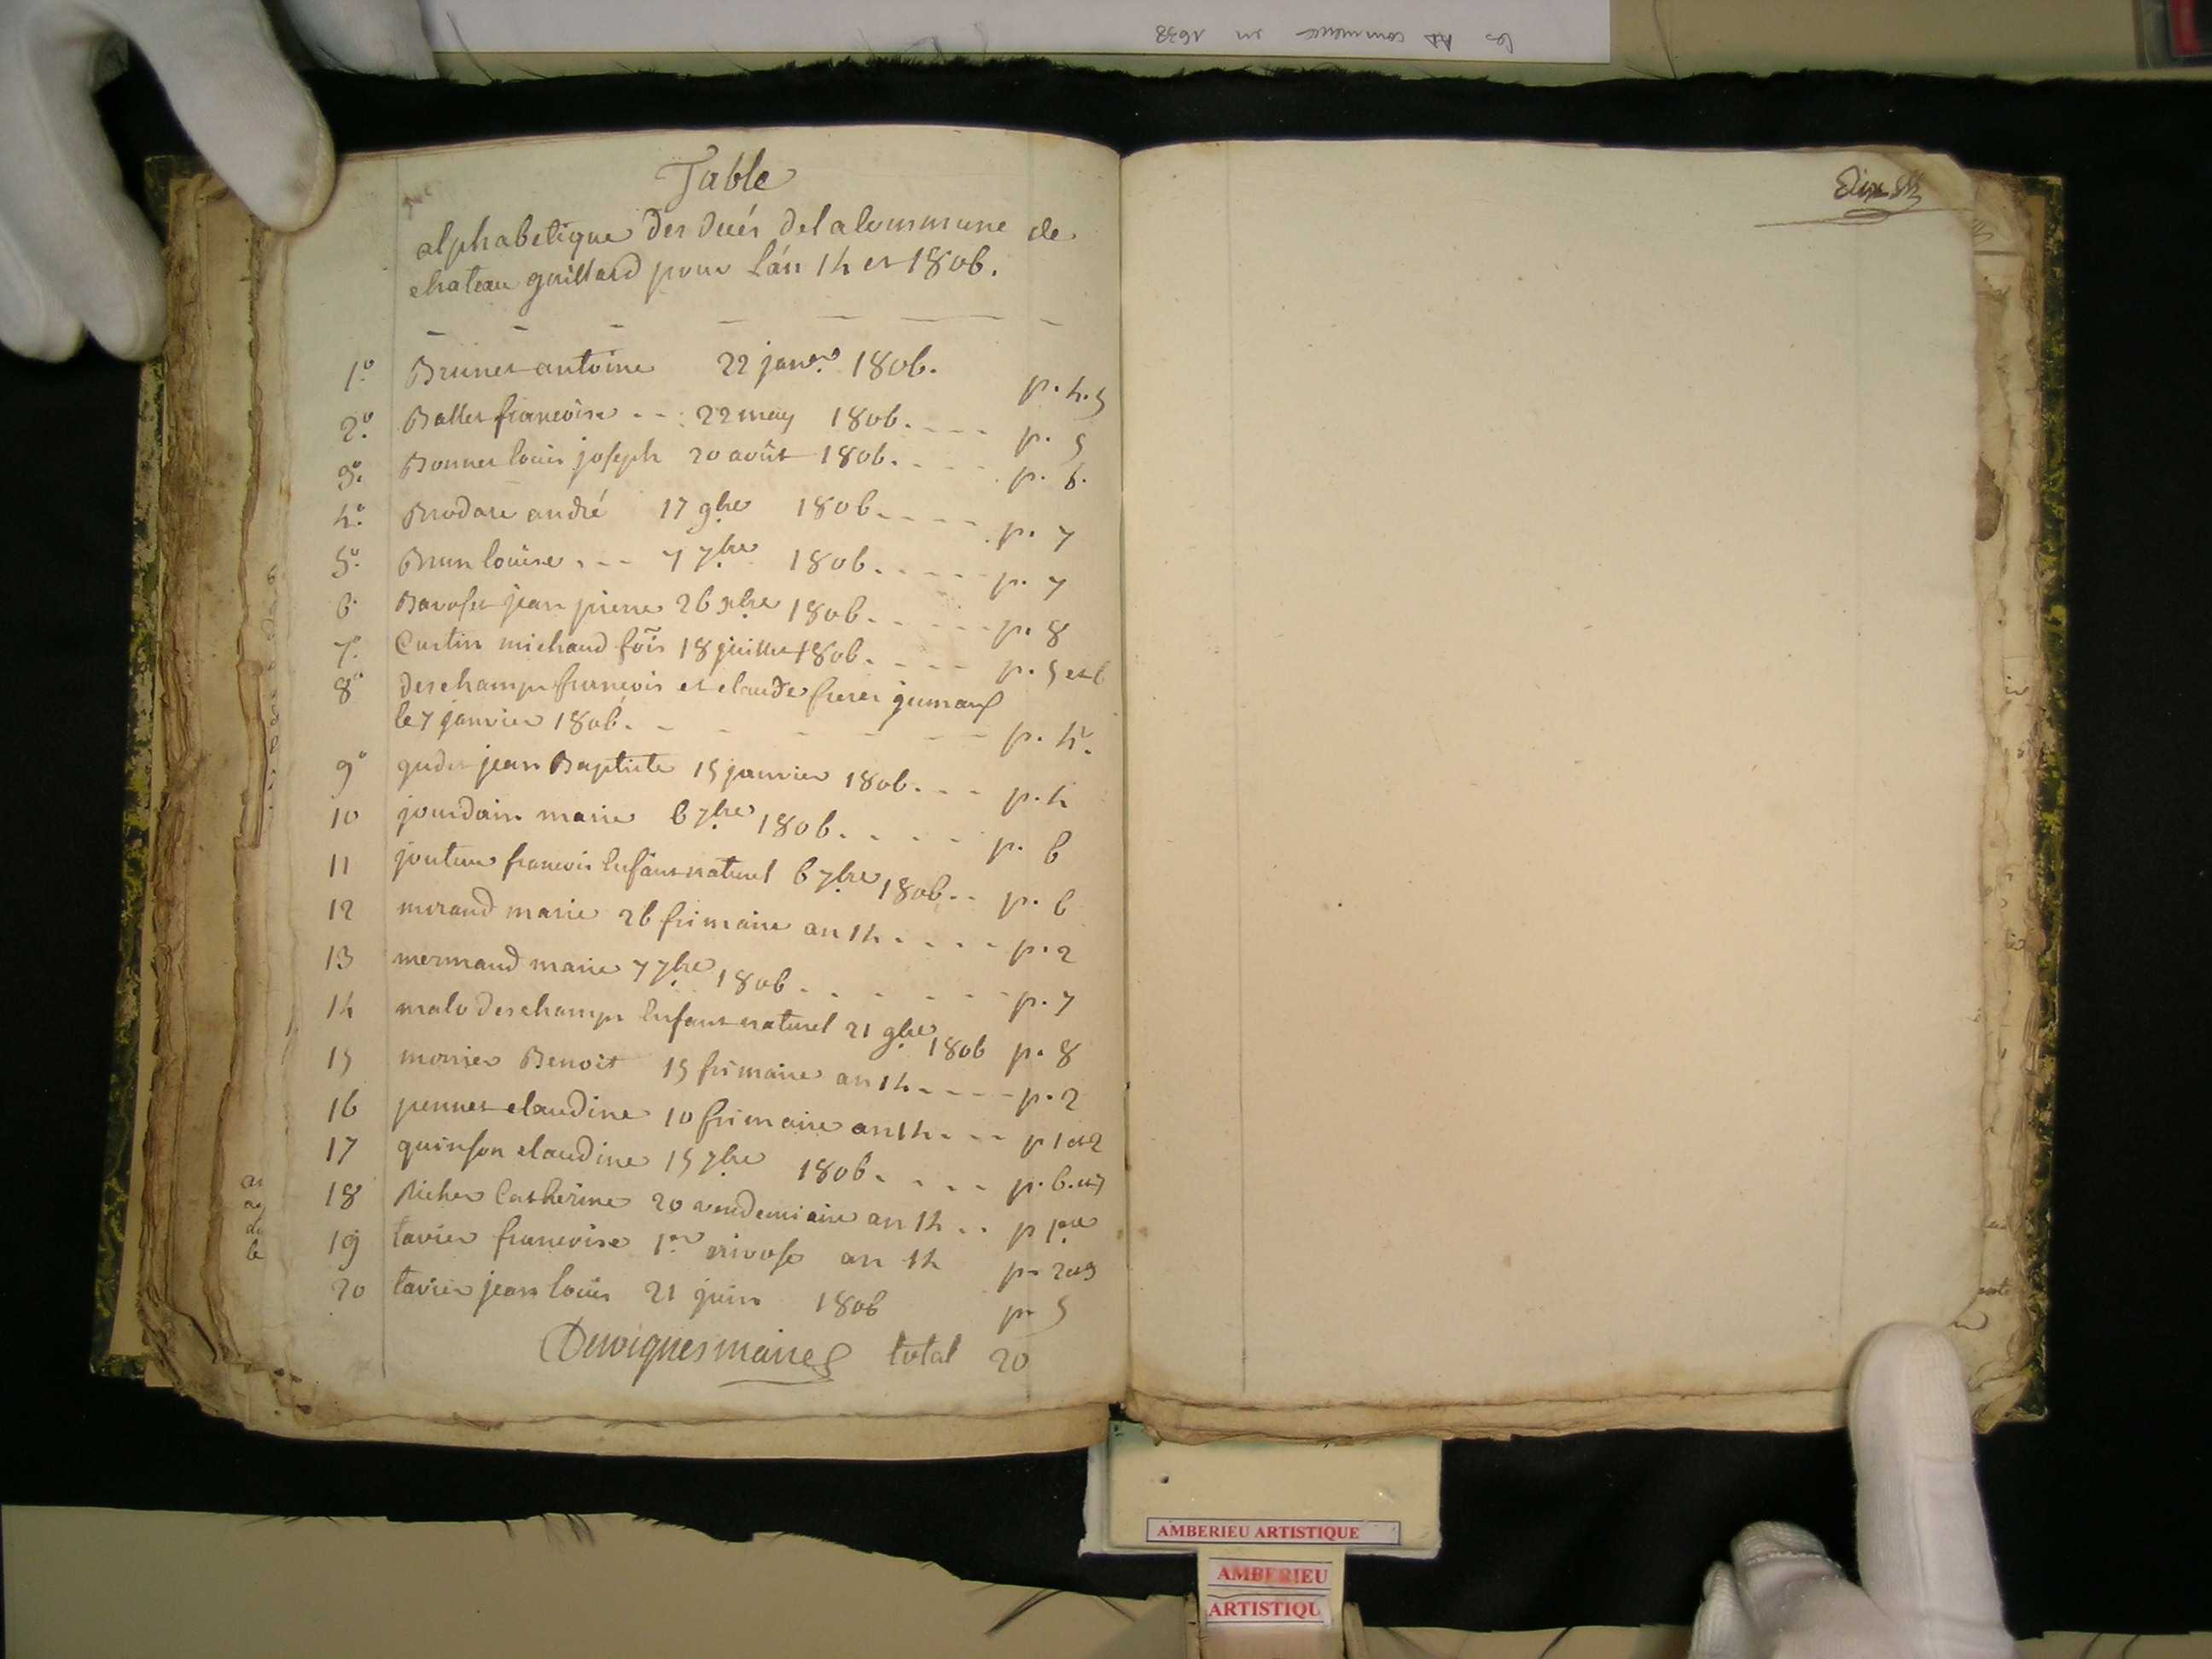 les commence en 1638
Table
alphabetique des decés de la Commune de
chateau gaillard pour l'an 14 et 1806.
1.° Brunet antoine 22 janv.er 1806. p. 4.5
2.° Ballet francoise - - 22 may 1806. - - - - p. 5
3.° Bonnet louis joseph 20 août 1806. - - - - p. 6.
4.° Brodare andré 17 9bre 1806. - - - - p. 7
5.° Brun louise - - - 7 7bre 1806. - - - - p. 7
6. jean pierre 26 1806. - - - - p. 8
7.° Curtin michaud fois 18 juillet 1806. - - - - p. 5 et 6
8° deschamps francois et claude freres jumaux
le 7 janvier 1806. - - - - - - p. 4.
9° jean Baptiste 15 janvier 1806. - - - p. 4
10 jourdain marie 6 7bre 1806. - - - - p. 6
11 francois Enfant naturel 6 7bre 1806. - - p. 6
12 morand marie 26 frimaire an 14 - - - - p. 2
13 mermand marie 7 7bre 1806 - - - - - p. 7
14 malo deschamps Enfant naturel 21 9bre 1806 p. 8
15 monier Benoit 15 frimaire an 14 - - - - p. 2
16 pennet claudine 10 frimaire an 14 - - - p 1 et 2
17 quinson claudine 15 7bre 1806. - - - - p. 6. et 7
18 Richer Catherine 20 vendemiaire an 14 - - p 1.ere
19 tavier francoise 1.er nivose an 14 p. 2 et 3
20 tavier jean louis 21 juin 1806 p. 5
maire total 20
AMBERIEU ARTISTIQUE
AMBERIEU
ARTISTIQU